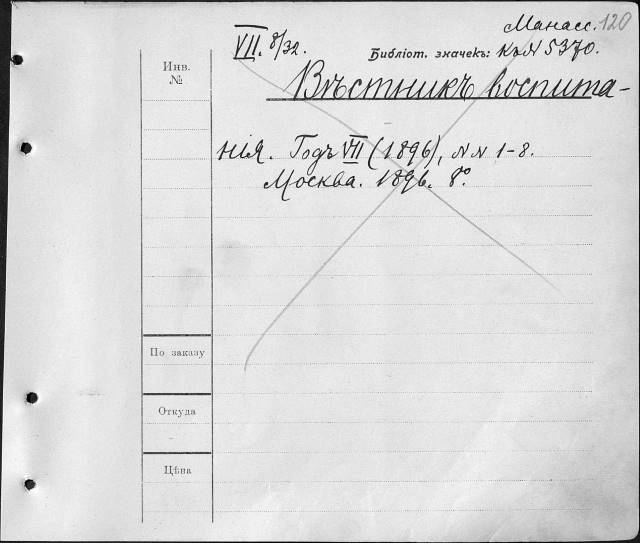 Манасс. 120
VII. 8/32.
Библіот. значекъ: Къ N 5370.
Инв.
№
Вѣстникъ воспита-
нія. Годъ VII (1896), N N 1-8.
Москва. 1896. 8°.
По заказу
Откуда
Цѣна